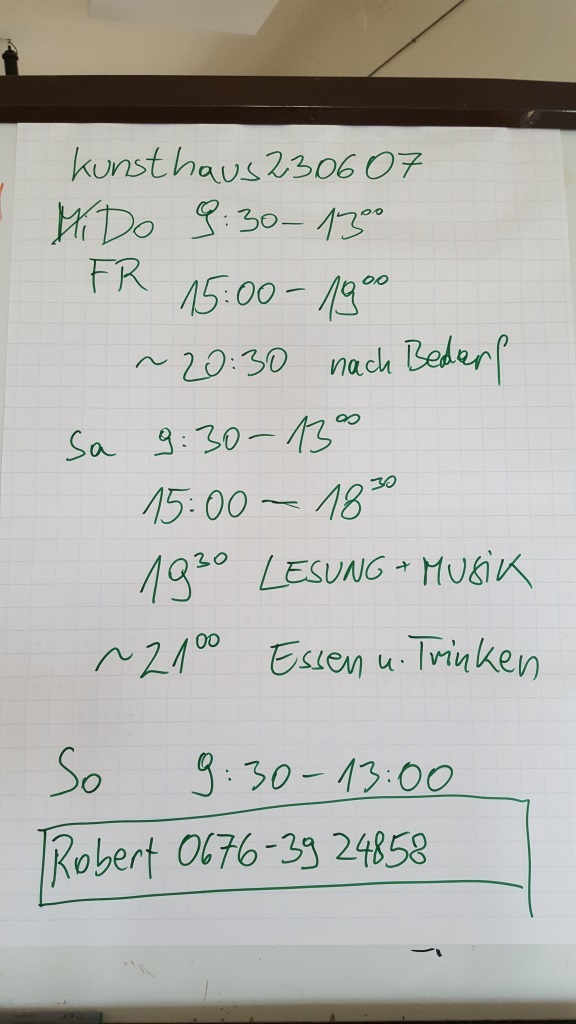 kunsthaus230607
Mi Do 9:30 – 13⁰⁰
FR 15:00 – 19⁰⁰
~ 20:30 nach Bedarf
Sa 9:30 – 13⁰⁰
15:00 – 18³⁰
19³⁰ LESUNG + MUSiK
~ 21⁰⁰ Essen u. Trinken
So 9:30 – 13:00
Robert 0676-39 24858